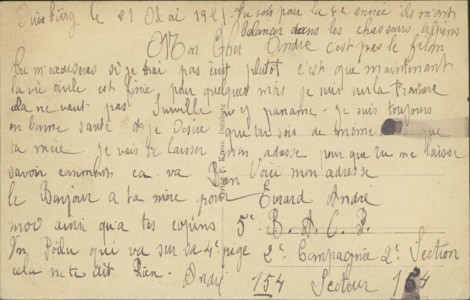 Duisburg le 21 Mai 1921. Tu vois pour la 2e année ils m'ont
balancer dans les chasseurs alpins
Mon Cher André c'est pas le filon
Tu m'excuseras si je t'ai pas écrit plutot c'est que maintenant
la vie civile est finie pour quelques mois je suis sur la
cela ne vaut pas ni paname - je suis toujours
en bonne santé et je Desire que tu sois de même que
ta mère je vais te laisser mon adresse pour que tu me laisse
savoir comment ca va Bien Voici mon adresse
le Bonjour a ta mère pour Evrard André
moi ainsi qu'a tes copains 5e B. A. C. P.
Un Poilu qui va sur sa 4e page 2e Compagnie 2e Section
cela ne te dit Rien - André 154 Secteur 154
Duisburg